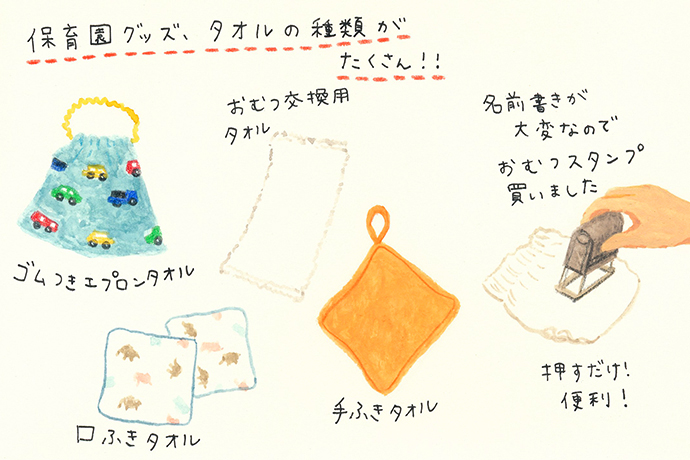 保育園グッズ、タオルの種類が
たくさん!!
おむつ交換用
タオル
名前書きが
大変なので
おむつスタンプ
買いました
ゴムつきエプロンタオル
口ふきタオル
手ふきタオル
押すだけ!
便利!